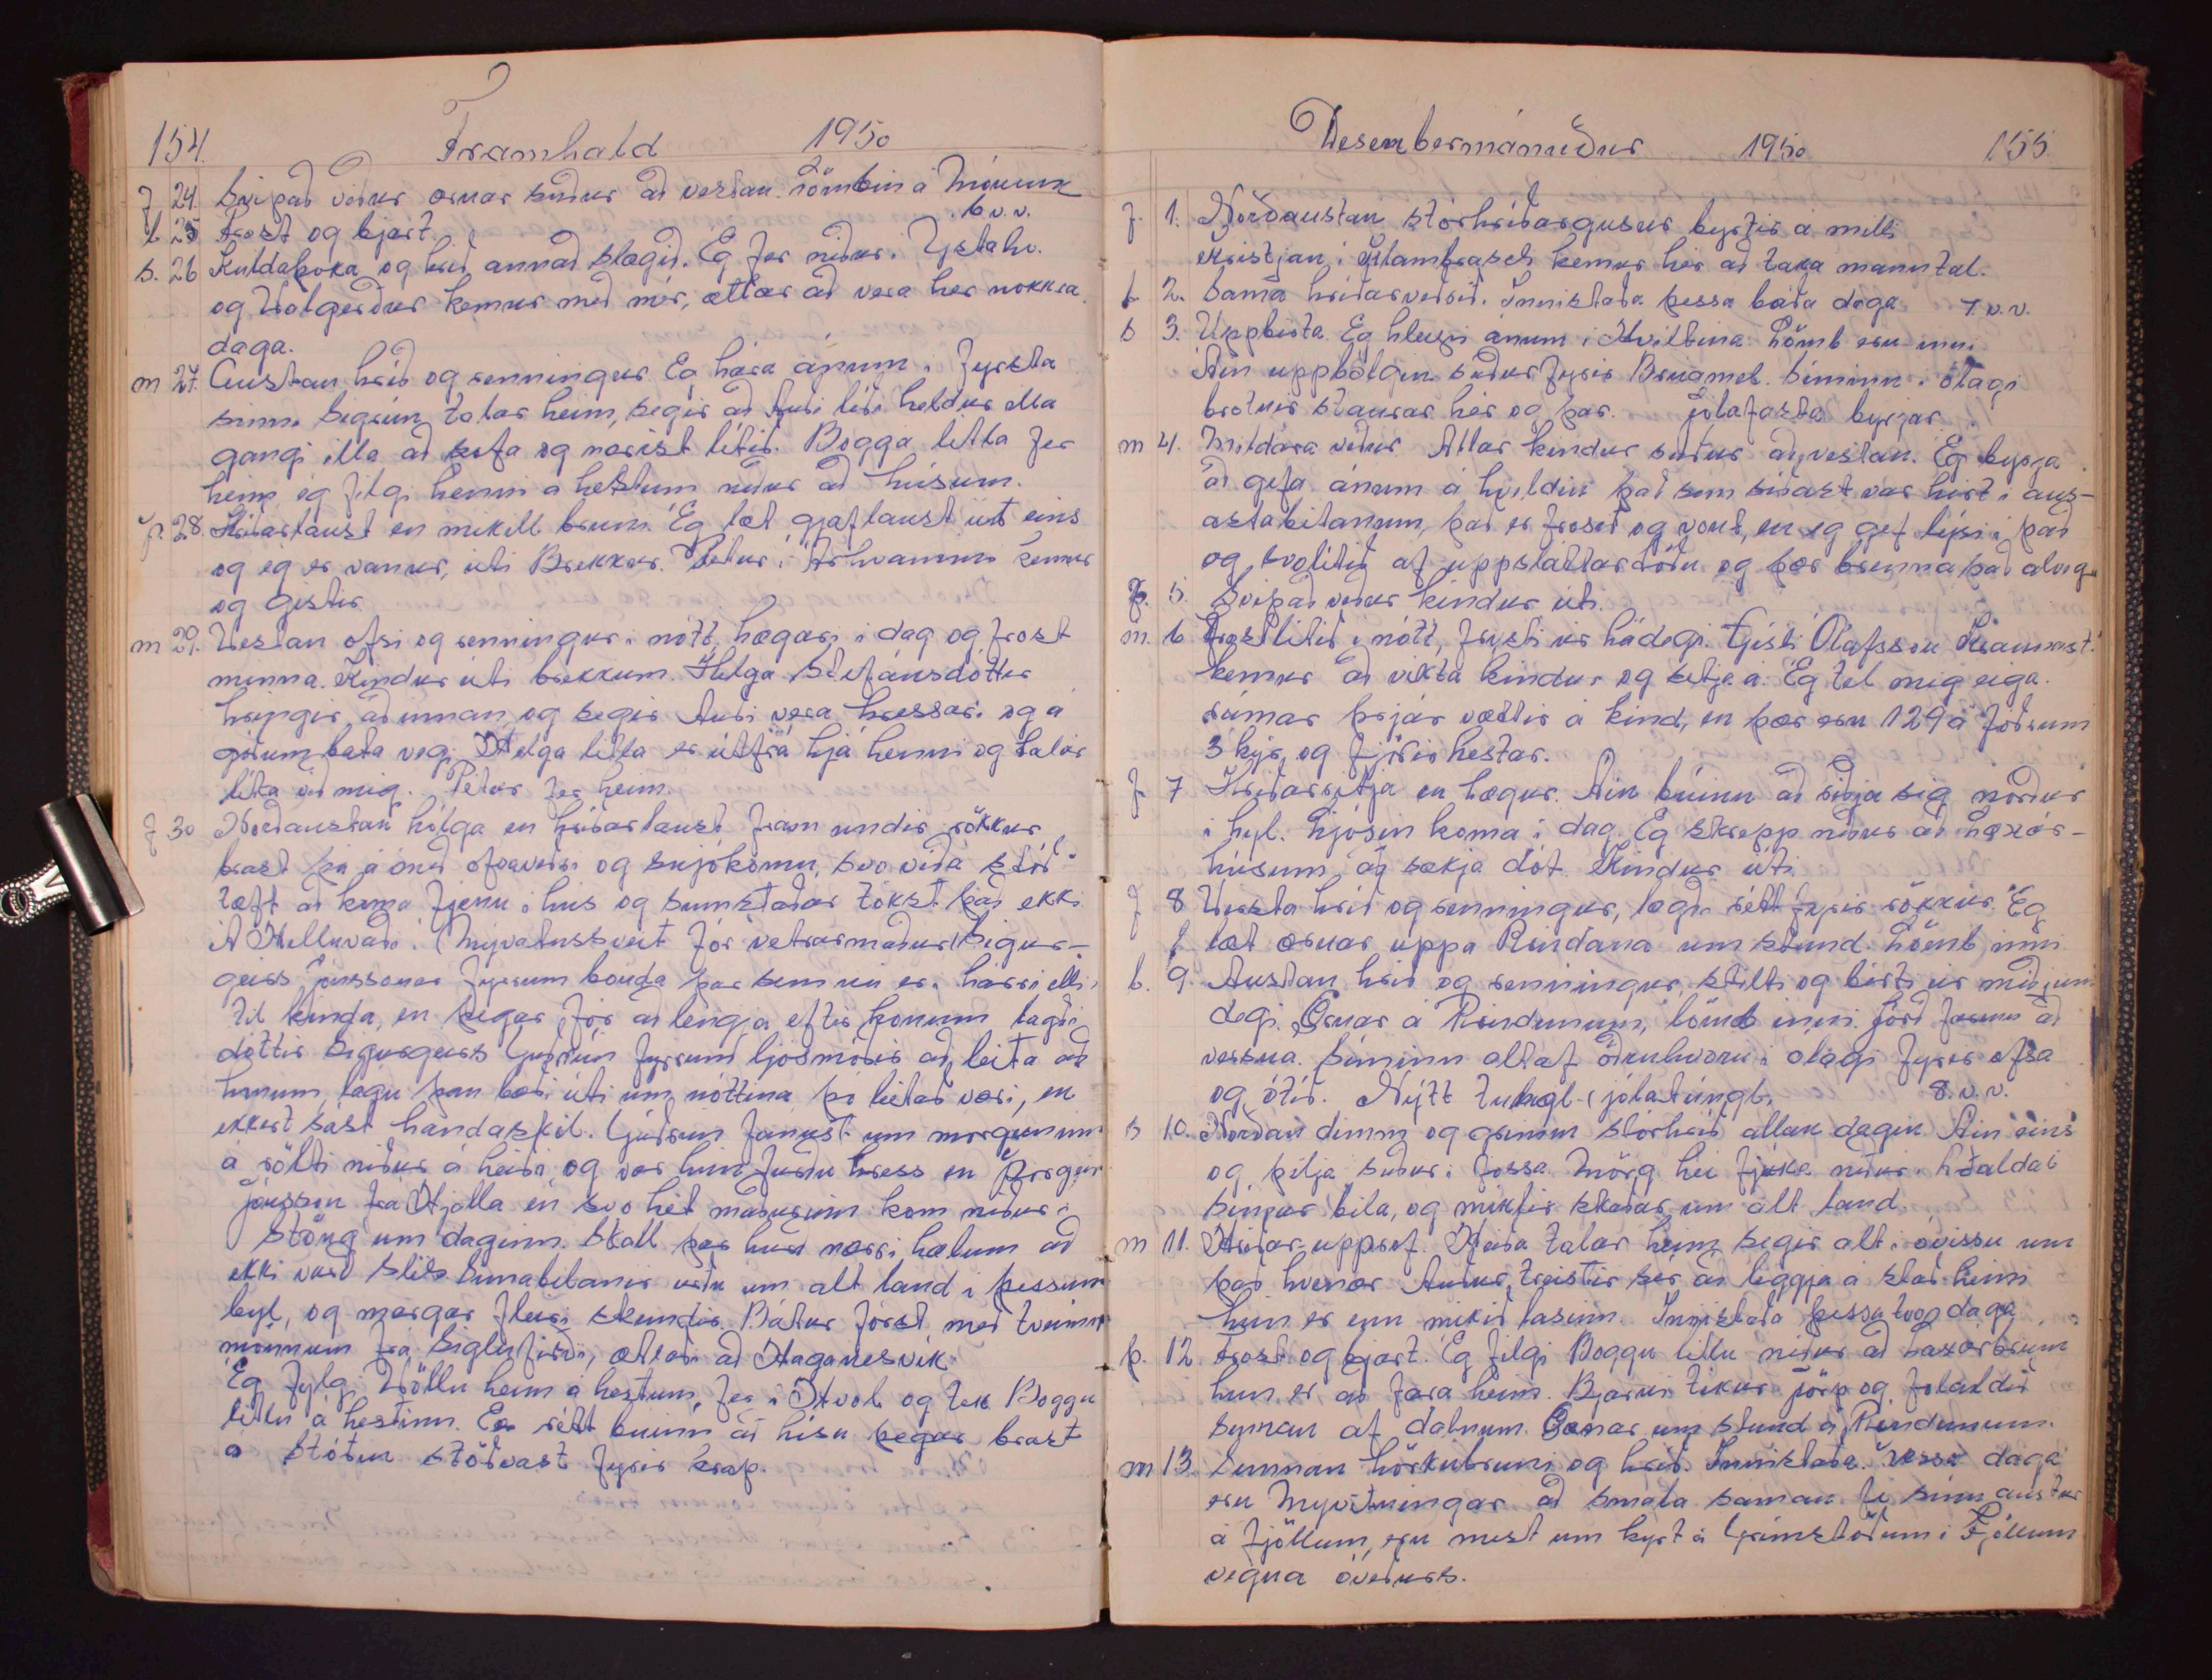 154. Framhald 1950
f 24. Svipað veður ærnar suður að vestan. Lömbin á Mónum
l 25 Frost og bjart. 6 v.v.
s. 26 Kuldaþoka og hríð annað slagið. Eg fer niður í Ystahv.
og Valgerður kemur með mér, ætlar að vera hér nokkra
daga.
m 27. Austan hríð og renningur. Eg hára ánum í fyrsta
sinn. Sigrún talar heim, segir að Auði líði heldur illa
gangi illa að sofa og nærist lítið. Bogga litla fer
heim eg filgi henni á hestum niður að húsum.
þ. 28. Hríðarlaust en mikill bruni. Eg læt gjaflaust út eins
og eg er vanur, úti Brekkur. Pétur í Árhvammi kemur
og gistir
m 29. Vestan ofsi og renningur í nótt, hægari í dag og frost
minna. Kindur úti brekkum. Helga Stefánsdóttir
hringir að innan, og segir Auði vera hressari og á
góðum bata vegi. Helga litla er útfrá hjá henni og talar
líka við mig. Pétur fer heim.
f 30 Norðaustan hólga en hríðarlaust fram undir rökkur
brast þá á með ofsaveðri og snjókomu, svo víða stóð
tæft að koma fjenu í hús og sumstaðar tókst það ekki
Á Helluvaði í Mývatnssveit fór vetrarmaður Sigur-
geirs Jónssonar fyrrum bónda þar sem nú er í hárri elli,
til kinda, en þegar fór að lengja eftir honum lagði
dóttir Sigurgeirs Guðrún fyrrum ljósmóðir að leita að
honum, lágu þau bæði úti um nóttina, þó leitað væri, en
ekkert sást handaskil. Guðrún fannst um morguninn
á rölti niður á heiði, og var hún furðu hress en Þorgeir
Jónsson frá Hjalla en svo hét maðurinn kom niður í
Stöng um daginn. Skall þar hurð nærri hælum að
ekki varð slis. Símabilanir urðu um alt land í þessum
byl, og margar fleiri skemdir. Bátur fórst með tveimur
mönnum frá Siglufirði, ætlaði að Haganesvík.
Eg fylgi Völlu heim á hestum, fer í Hvol og tek Boggu
litlu á hestinn. Er rétt búinn að hísa þegar brast
á Stóðin stöðvast fyrir krap.

Desembermánuður 1950 155.
f. 1. Norðaustan stórhríðargusur byrtir á milli
Kristján í Klambraseli kemur hér að taka manntal.
l. 2. Sama hríðarveðrið. Innistaða þessa báða daga 7. v.v.
s 3. Uppbirta. Eg hleypi ánum í Hvíltina. Lömb eru inni
Áin uppbólgin suður fyrir Brúamel. Síminn í ólagi
brotnir staurar hér og þar. Jólafasta byrjar.
m 4. Mildara veður Allar kindur suður að vestan. Eg byrja
að gefa ánum á hvíldin það sem síðast var hirt í aus-
astabitanum, það er frosið og vont, en eg gef lýsi í það
og svolítið af uppsláttartöðu og þær brenna það alveg
þ. 5. Svipað veður kindur úti.
m. 6 Frostlítið í nótt, frysti úr hádegi. Gísli Ólafsson Kraunast.
kemur að vikta kindur og setja á. Eg tel mig eiga
rúmar þrjár vættir á kind, en þær eru 129 á fóðrum
3 kýr og fjórir hestar.
f 7 Hríðarsitja en hægur. Áin búinn að riðja sig norður
í hyl. Ljósin koma í dag. Eg skrepp niður að Laxár-
húsum að sækja dót. Kindur úti
f 8 Versta hríð og renningur, lægði rétt fyrir rökkur. Eg
læt ærnar uppá Rindana um stund. Lömb inni
l. 9. Austan hríð og renningur, stilti og birti úr miðjum
degi. Ærnar á Rindunum, lömb inni. Jörð farin að
versna. Síminn altaf öðruhvoru í ólagi fyrir ofsa
og ótíð. Nýtt tungl (jólatúngl. 8. v.v.
s 10. Norðan dimm og grimm stórhríð allan daginn. Áin eins
og þilja suður í fossa. Mörg hei fjúka niður í
Símar bila, og miklir skaðar um alt land.
m 11. Hríðar uppref. Heiða talar heim segir alt í óvissu um
það hvenær Auður treistir sér að leggja á stað heim
hún er enn mikið lasinn. Innistaða þessa tvo daga
þ. 12. Frost og bjart. Eg filgi Boggu litlu niður að Laxárbrúm
hún er að fara heim. Bjarki tekur Jörp og folaldið
sunnan af dalnum. Ærnar um stund á Rindunum.
m 13. Sunnan hörkubruni og hríð. Innistaða. Þessa daga
eru Mývetningar að smala saman fé sínu austur
á fjöllum, eru mest um kyrt á Grímstöðum í Fjöllum
vegna óveðurs.